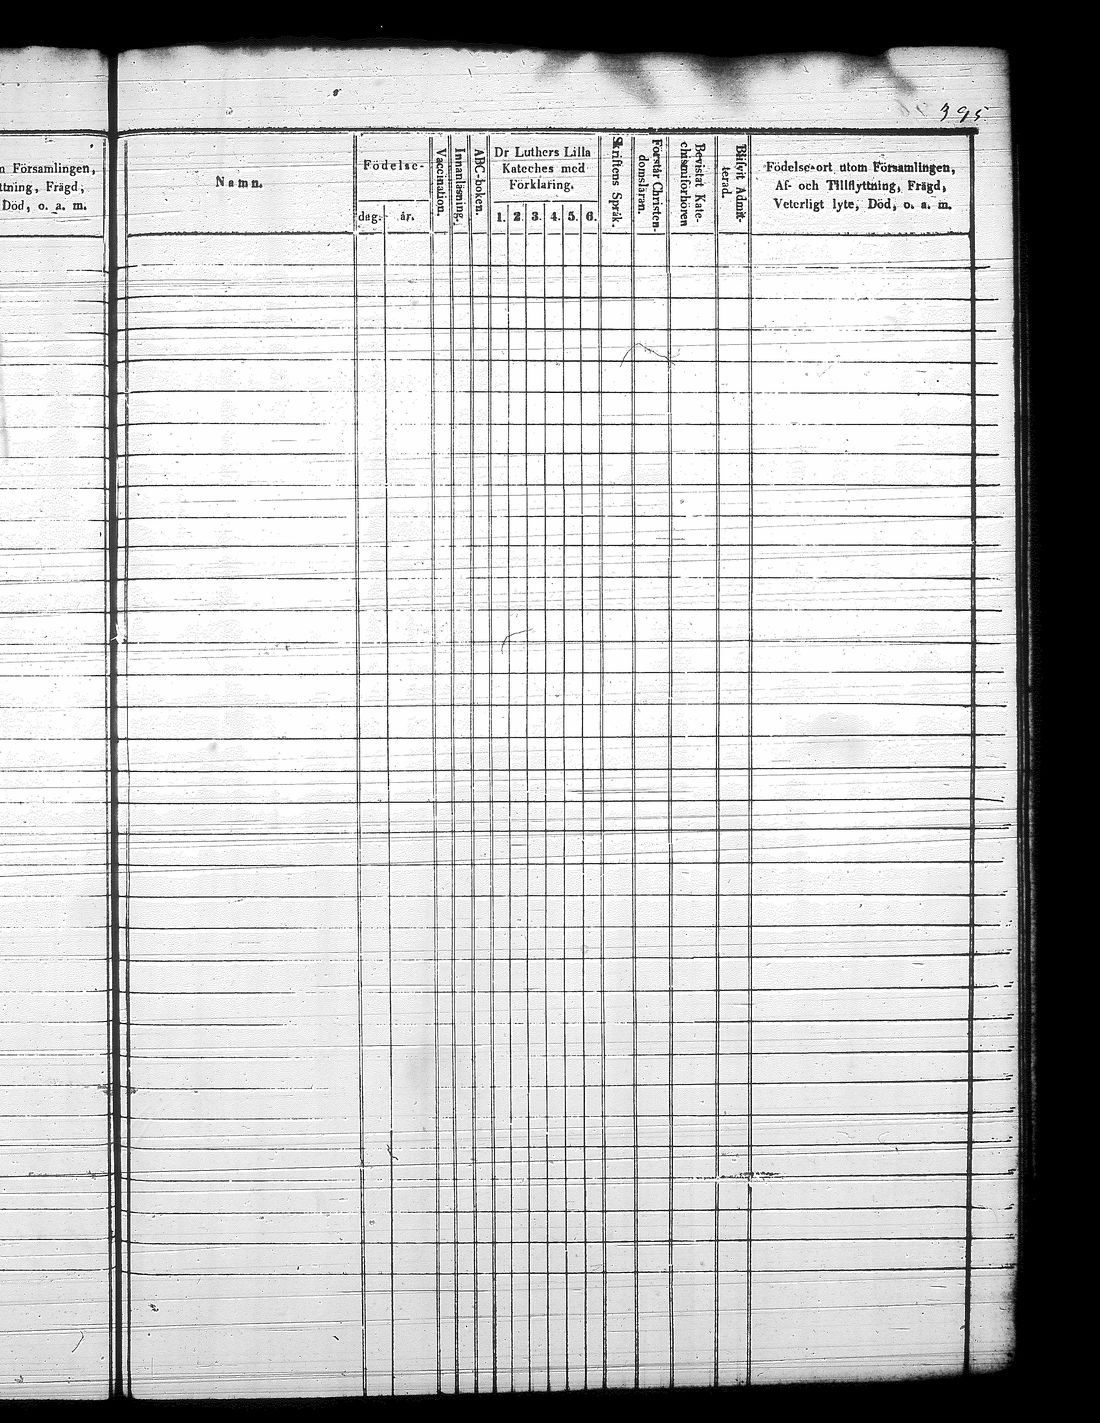 395
n Församlingen,
ttning, Frägd,
Död, o. a. m.
Namn.
Födelse-
dag.
år.
Vaccination.
Innanläsning.
ABC-boken.
Dr Luthers Lilla
Kateches med
Förklaring.
1. 2. 3. 4. 5. 6.
Skriftens Språk.
Förstår Christen-
domsläran.
Bevistat Kate-
chismiförhören
Blifvit Admit-
terad.
Födelse-ort utom Församlingen,
Af- och Tillflyttning, Frägd,
Veterligt lyte, Död, o. a. m.